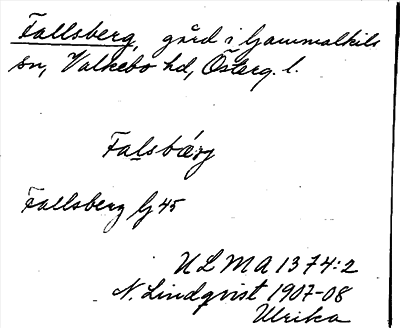 Fallsberg, gård i Gammalkils
sn, Valkebo hd, Österg. l.
Falsbærj
Fallsberg G 45
ULMA 1374:2
N. Lindqvist 1907-08
Ulrika